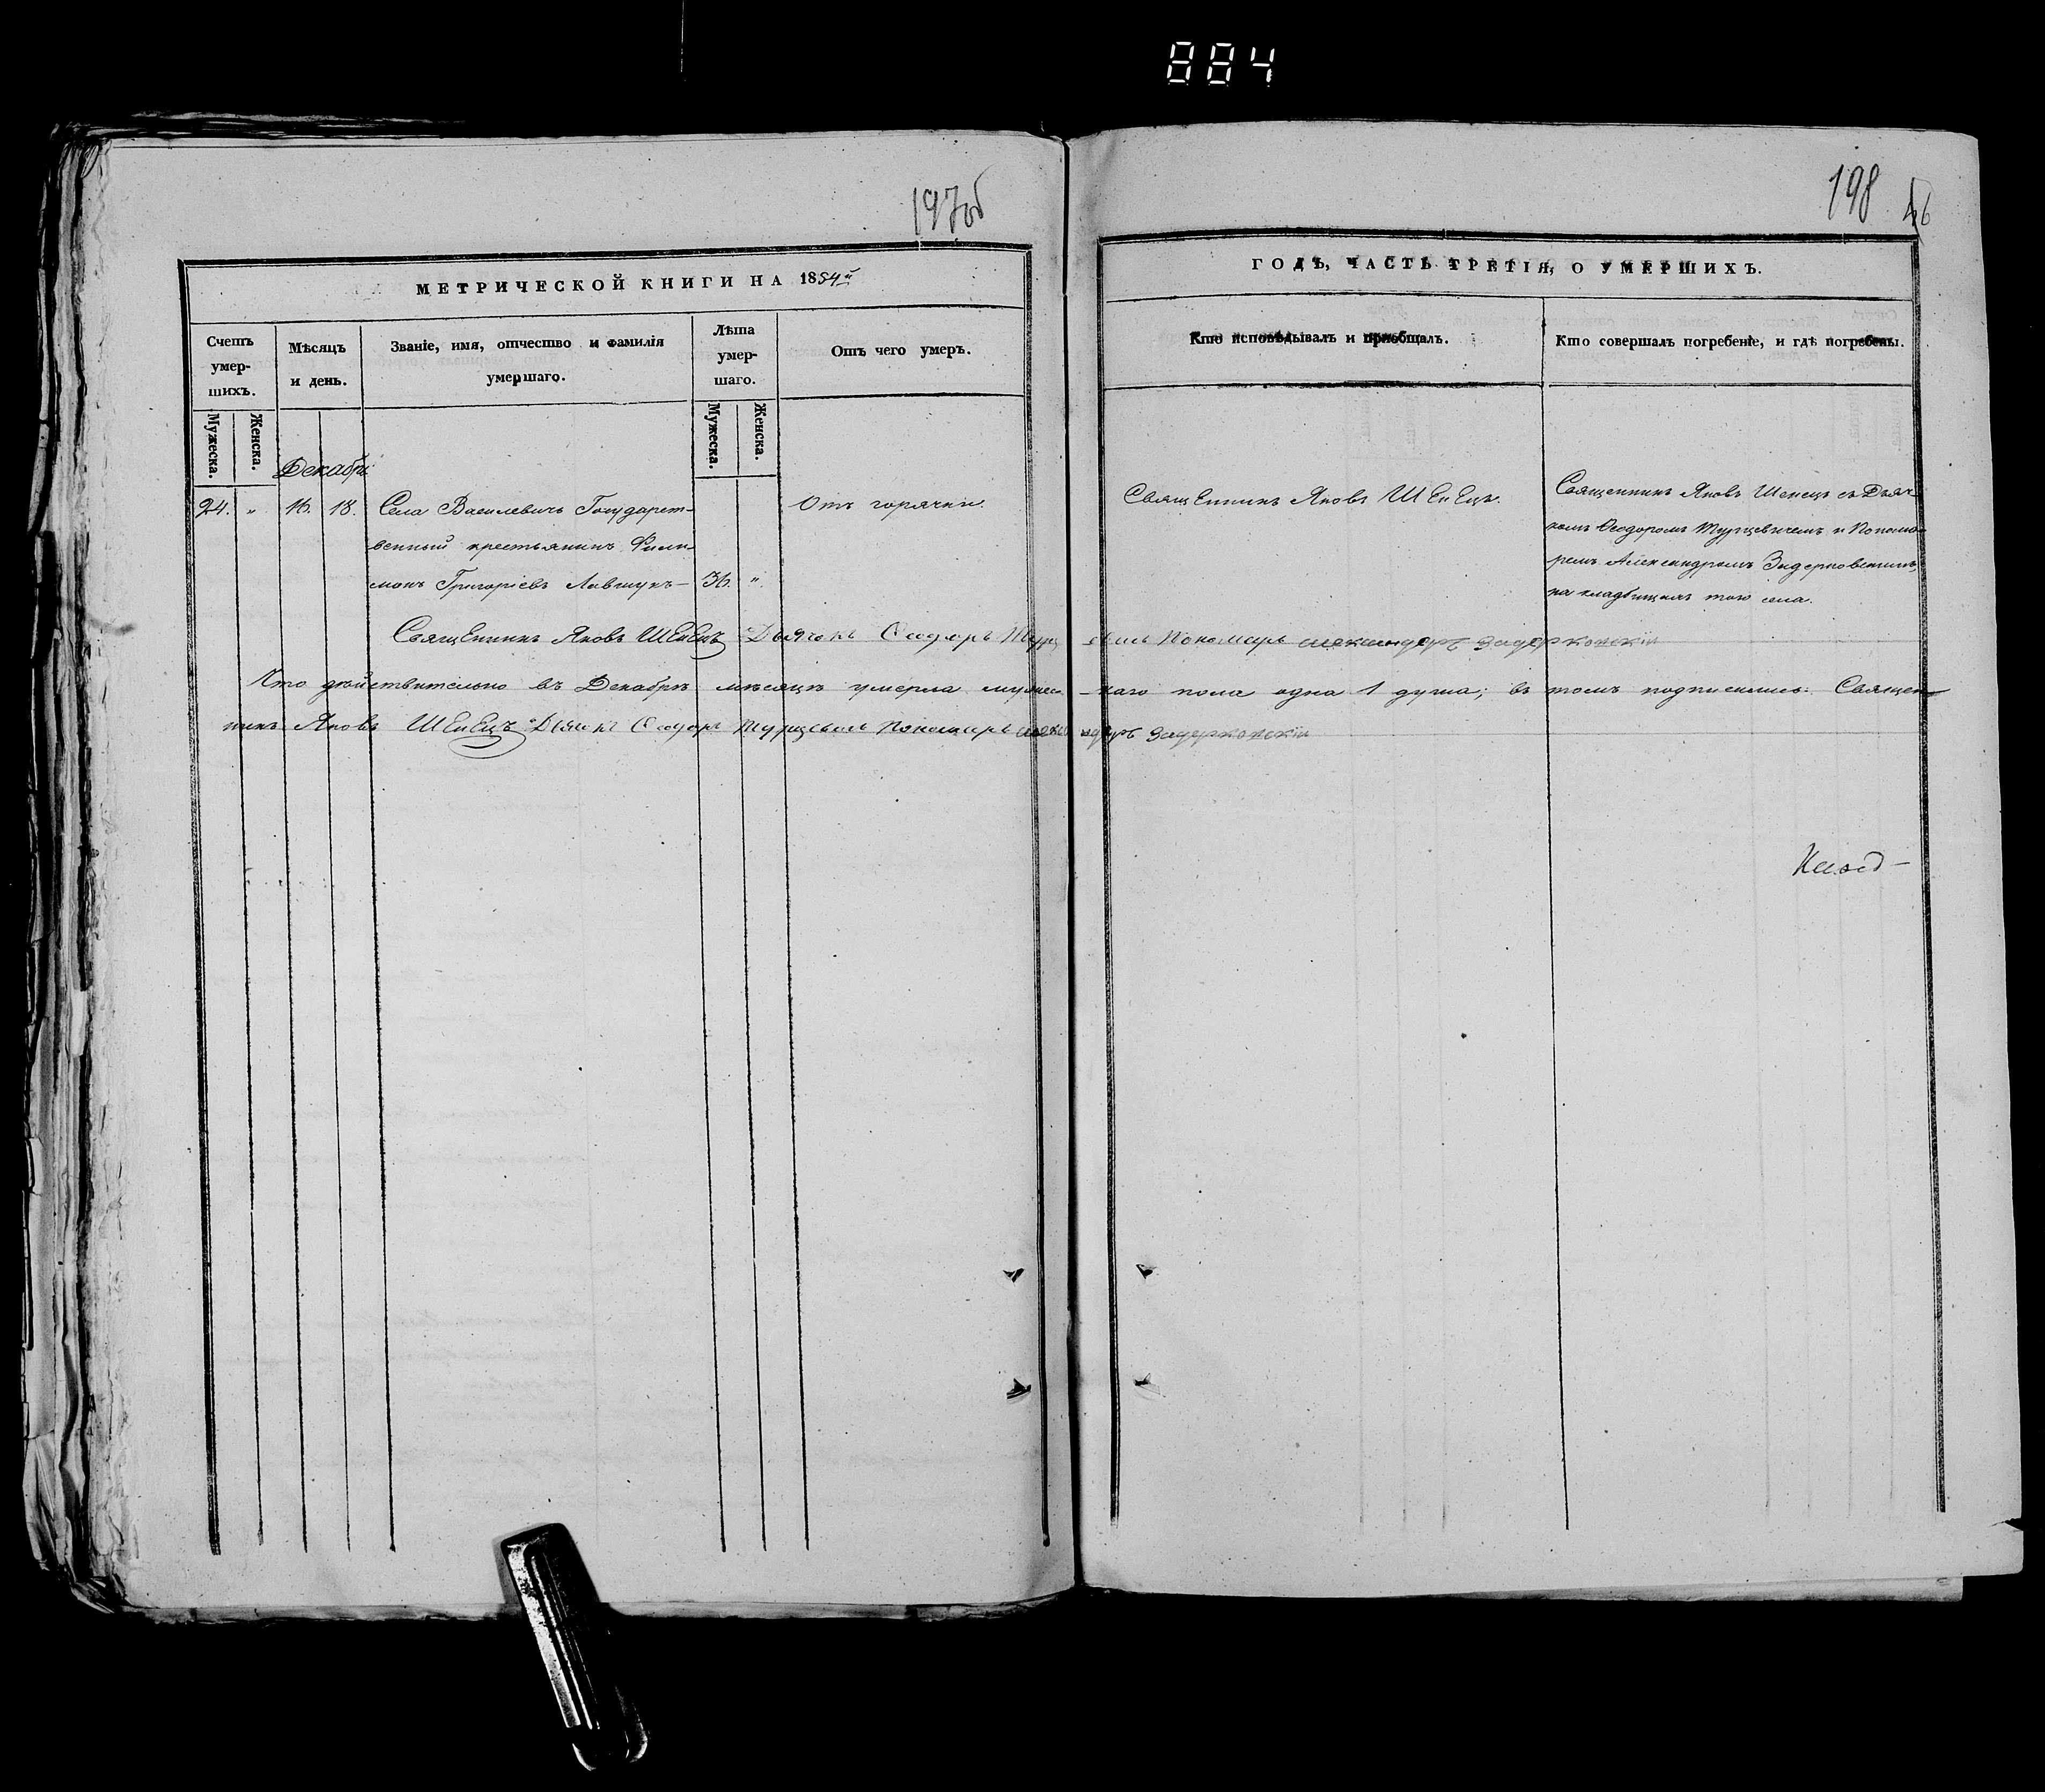 884
197об
198
46
МЕТРИЧЕСКОЙ КНИГИ НА 1854й
ГОДЪ, ЧАСТЬ ТРЕТІЯ, О УМЕРШИХЪ.
Счетъ умер-
шихъ.
Мѣсяцъ
и день.
Званіе, имя, отчество и фамилія
умершаго.
Лѣта
умер-
шаго.
Отъ чего умеръ.
Кто исповѣдывалъ и приобщалъ.
Кто совершалъ погребеніе, и гдѣ погребены.
Мужеска.
Женска.
Мужеска.
Женска.
Декабрь
24. „ 16. 18. Села Василевичъ Государст-
венный крестьянинъ Фили-
монъ Григоріевъ Левчукъ — 36. „
Отъ горячки.
Священникъ Яковъ Шенецъ.
Священникъ Яковъ Шенецъ съ Дьяч-
комъ Ѳеодоромъ Турцевичемъ и Понома-
ремъ Александромъ Задерковскимъ,
на кладбищахъ того села.
Священникъ Яковъ Шенецъ Дьячокъ Ѳеодоръ Турцевичъ Пономарь Александръ Задерковскій
Что дѣйствительно въ Декабрѣ мѣсяцѣ умерла мужес-каго пола одна 1 душа; въ томъ подписались: Священ-
никъ Яковъ Шенецъ Дьячокъ Ѳеодоръ Турцевичъ Пономарь Александръ Задерковскій